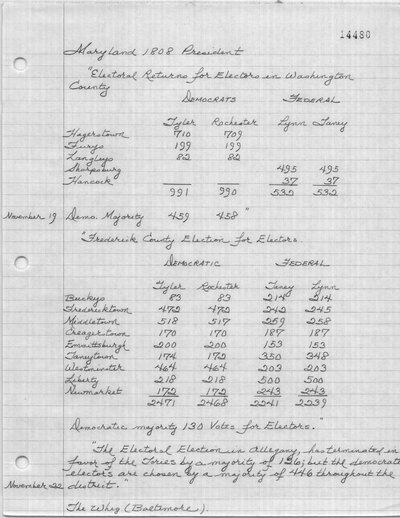 14480
Maryland 1808 President
"Electoral Returns for Electors in Washington
County
Democrats Federal
Tyler Rochester Lynn Taney
Hagerstown 710 709
Funys 199 199
Langleys 82 82
Sharpsburg 495 495
Hancock 37 37
991 990 532 532
November 19 Demo. Majority 459 458"
"Frederick County Election for Electors.
Democratic Federal
Tyler Rochester Taney Lynn
Buckeys 83 83 214 214
Fredericktown 472 472 242 245
Middletown 518 517 259 258
Creagerstown 170 170 187 187
Emmittsburgh 200 200 153 153
Taneytown 174 172 350 348
Westminster 464 464 203 203
Liberty 218 218 500 500
Newmarket 172 172 243 243
2471 2468 2241 2239
Democratic majority 130 Votes for Electors."
"The Electoral Election in Allegany, has terminated in
favor of the Tories by a majority of 126; but the democratic
electors are chosen by a majority of 446 throughout the
November 22 district."
The Whig (Baltimore).